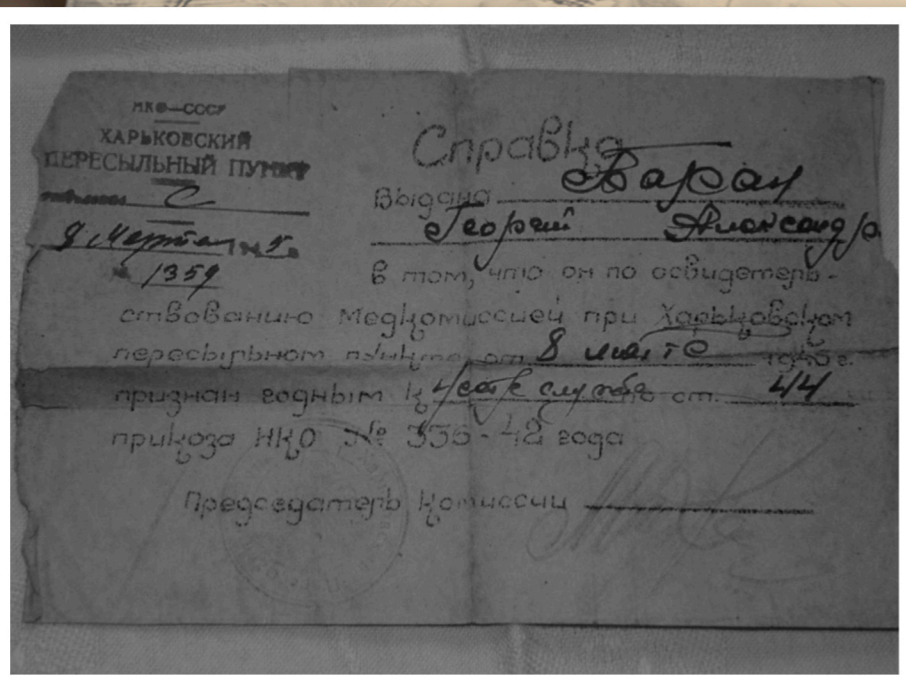 НКО—СССР
ХАРЬКОВСКИЙ
ПЕРЕСЫЛЬНЫЙ ПУНКТ
С
8 Марта 194 5
№ 1359
Справка
Выдана Таран
Георгий Александро
в том, что он по освидетель-
ствованию медкомиссией при Харьковском
пересыльном пункте от 8 марта 1945г.
признан годным к службе ст. 44
приказа НКО № 336-42 года
Председатель комиссии